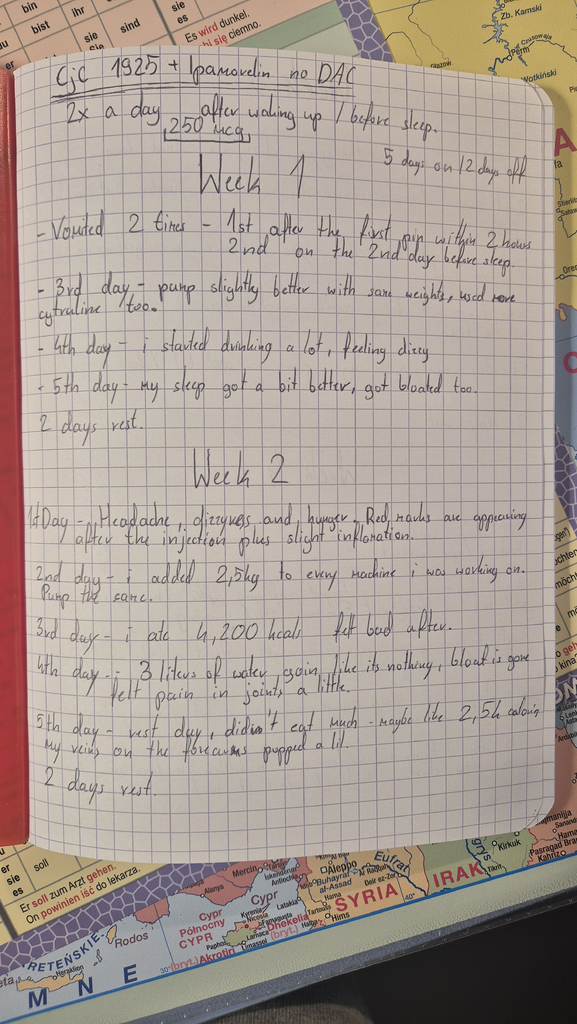 bin
ihr
sie
es
du
bist
er
sie
sind
sie
Es wird dunkel.
robi się ciemno.
Zb. Kamski
Perm
Czusowaja
Wotkiński
Głazow.
CjC 1925 + Ipamorelin no DAC
2x a day after waking up / before sleep.
250 mcg
5 days on / 2 days off
Week 1
- Vomited 2 times - 1st after the first pin within 2 hours
2nd on the 2nd day before sleep.
- 3rd day - pump slightly better with same weights, used more
cytruline too.
- 4th day - i started drinking a lot, feeling dizzy
- 5th day - my sleep got a bit better, got bloated too.
2 days rest.
Week 2
1st Day - Headache, dizzyness and hunger. Red marks are appearing
after the injection plus slight inflamation.
2nd day - i added 2,5kg to every machine i was working on.
Pump the same.
3rd day - i ate 4,200 kcals felt bad after.
4th day - 3 liters of water again like its nothing, bloat is gone
felt pain in joints a little.
5th day - rest day, didn't eat much - maybe like 2,5k calories
My veins on the forearms popped a lil.
2 days rest.
er
sie
es
soll
Er soll zum Arzt gehen.
On powinien iść do lekarza.
KRETEŃSKIE
Rodos
Heraklion
M N E
Cypr
Północny
CYPR
Cypr
Kyrenia
Nicosia
Famagusta
Larnaca
Paphos
Dhekelia
(bryt.)
30° (bryt.) Akrotiri
Mercin
Alanya
Iskenderun
Antiochia
Latakia
Tartus
Hims
Aleppo
Buhayrat
al-Assad
Ar Raqqah
Deir ez-Zor
Eufrat
SYRIA
40°
IRAK
Kirkuk
Sanandaj
Pasragad Branch
Kahriz